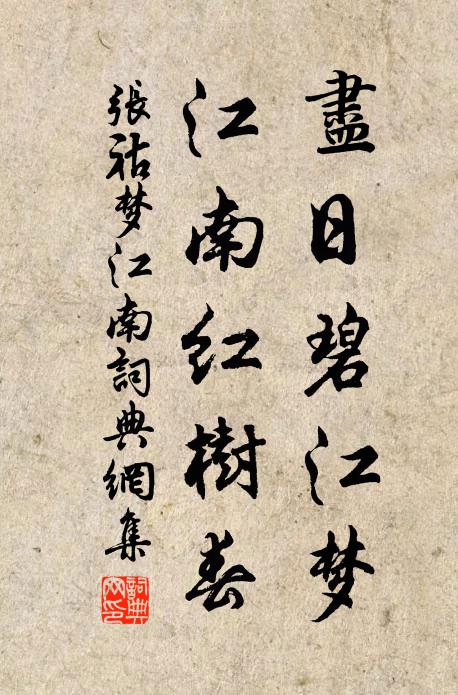 盡日碧江梦
江南红樹春
張祜梦江南詞典網集
詞典网印